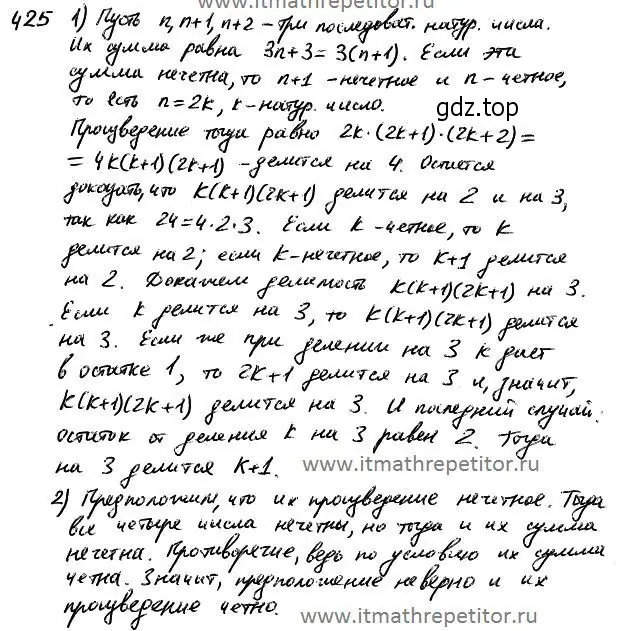 425 1) Пусть n, n+1, n+2 – три последоват. натур. числа.
Их сумма равна 3n+3=3(n+1). Если эта
сумма нечетна, то n+1 – нечетное и n – четное,
то есть n=2k, k – натур. число.
gdz.top
Произведение тогда равно 2k·(2k+1)·(2k+2)=
=4k(k+1)(2k+1) – делится на 4. Остается
доказать, что k(k+1)(2k+1) делится на 2 и на 3,
так как 24=4·2·3. Если k – четное, то k
делится на 2; если k – нечетное, то k+1 делится
на 2. Докажем делимость k(k+1)(2k+1) на 3.
Если k делится на 3, то k(k+1)(2k+1) делится
на 3. Если же при делении на 3 k дает
в остатке 1, то 2k+1 делится на 3 и, значит,
k(k+1)(2k+1) делится на 3. И последний случай:
остаток от деления k на 3 равен 2. Тогда
на 3 делится k+1.
www.itmathrepetitor.ru
2) Предположим, что их произведение нечетное. Тогда
все четыре числа нечетны, но тогда и их сумма
нечетна. Противоречие, ведь по условию их сумма
четна. Значит, предположение неверно и их
произведение четно.
www.itmathrepetitor.ru
www.itmathrepetitor.ru